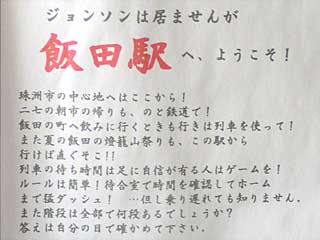 ジョンソンは居ませんが
飯田駅へ、ようこそ！
珠洲市の中心地へはここから！
二七の朝市の帰りも、のと鉄道で！
飯田の町へ飲みに行くときも行きは列車を使って！
また夏の飯田の燈籠山祭りも、この駅から
行けば直ぐそこ!!
列車の待ち時間は足に自信が有る人はゲームを！
ルールは簡単！待合室で時間を確認してホーム
まで猛ダッシュ！ …但し乗り遅れても知りません。
また階段は全部で何段あるでしょうか？
答えは自分の目で確かめて下さい。